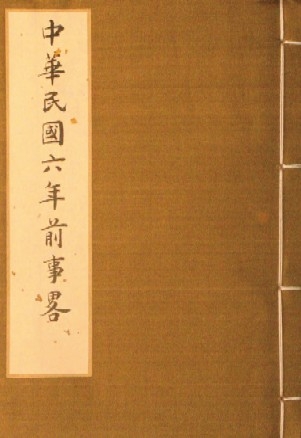 中華民國六年前事畧